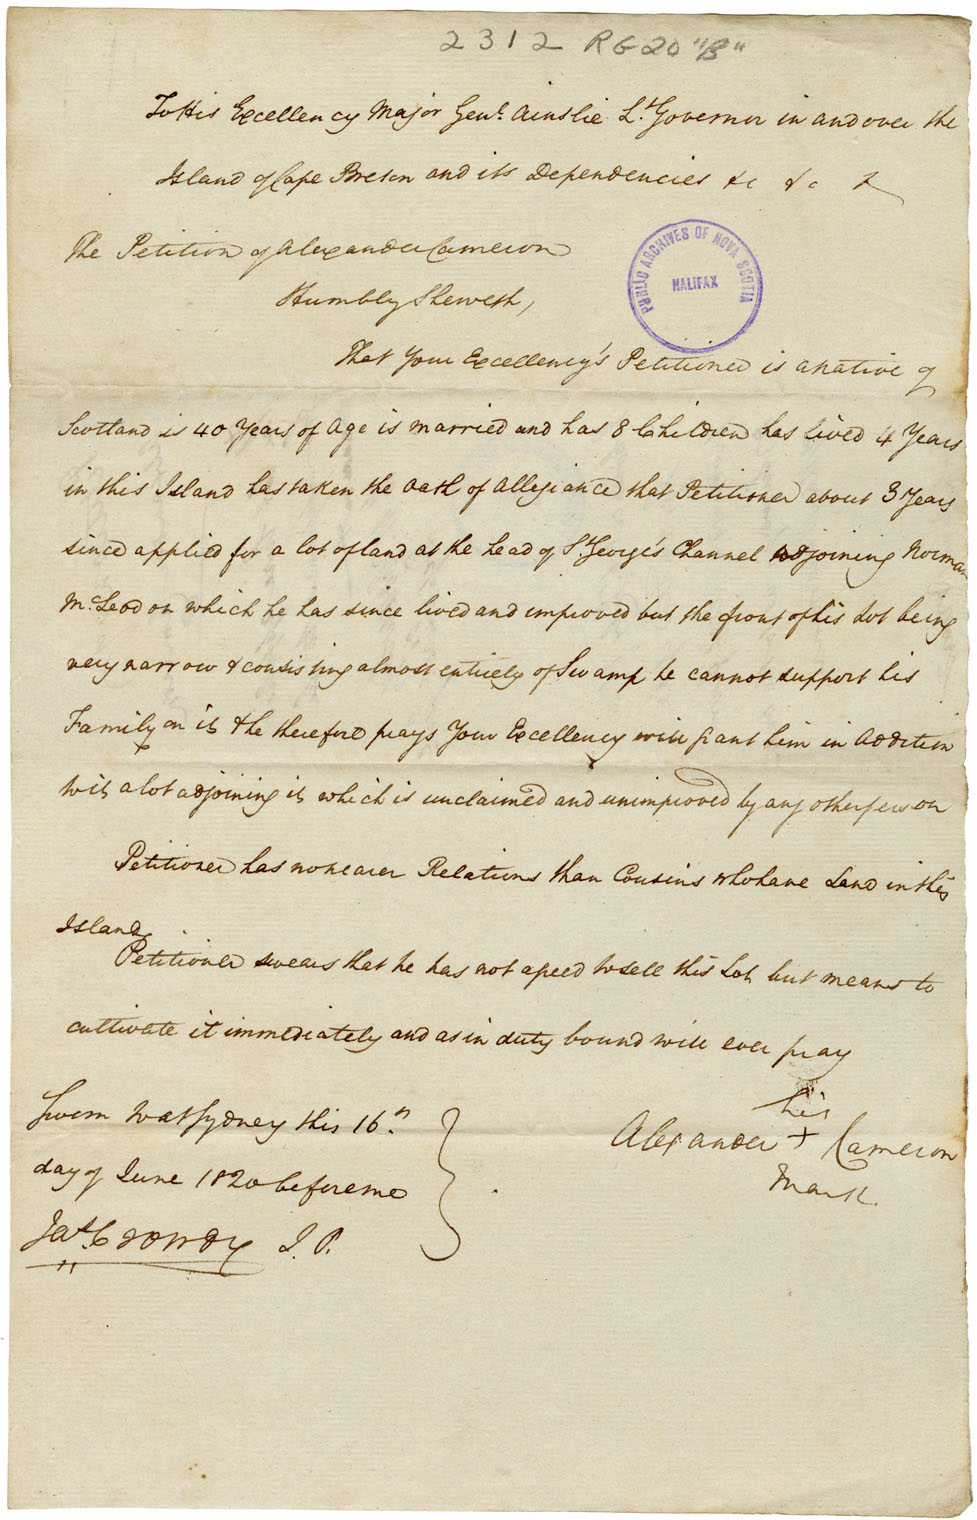 2312 RG 20 "B"
To His Excellency Major Genl. Ainslie Lt. Governor in and over the
Island of Cape Breton and its Dependencies &c &c &
PUBLIC ARCHIVES OF NOVA SCOTIA
HALIFAX
The Petition of Alexander Cameron
Humbly Sheweth,
That Your Excellency's Petitioner is a native of
Scotland is 40 Years of Age is married and has 8 Children has lived 4 Years
in this Island has taken the Oath of Allegiance that Petitioner about 3 Years
since applied for a lot of land at the head of St. George's Channel adjoining Norman
McLeod on which he has since lived and improved but the front of his Lot being
very narrow & consisting almost entirely of Swamp he cannot support his
Family on it & he therefore prays Your Excellency will grant him in Addition
to it a lot adjoining it which is unclaimed and unimproved by any other person
Petitioner has no nearer Relations than Cousins who have Land in this
Island
Petitioner swears that he has not agreed to sell this Lot but means to
cultivate it immediately and as in duty bound will ever pray
Sworn to at Sydney this 16th
day of June 1820 before me
J. P.
his
Alexander + Cameron
Mark